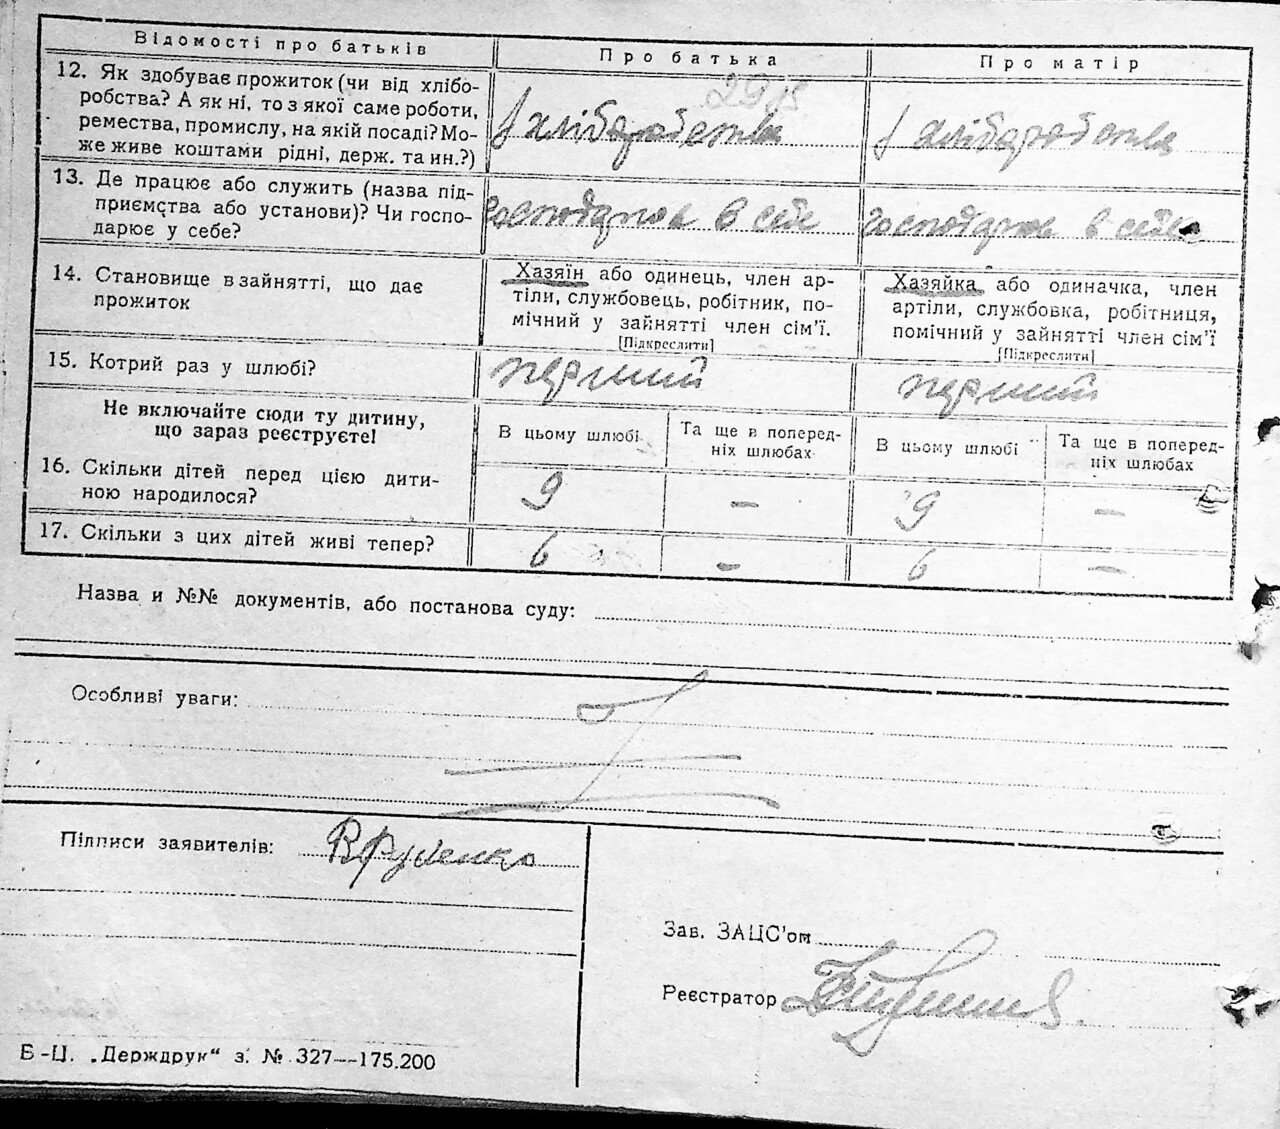 Відомості про батьків Про батька Про матір
12. Як здобуває прожиток (чи від хлібо-
робства? А як ні, то з якої саме роботи,
ремества, промислу, на якій посаді? Мо-
же живе коштами рідні, держ. та ин.?)
29
з хліборобства
з хліборобства
13. Де працює або служить (назва під-
приємства або установи)? Чи госпо-
дарює у себе?
Господарює в себе
Господарює в себе
14. Становище в зайнятті, що дає
прожиток
Хазяїн або одинець, член ар-
тіли, службовець, робітник, по-
мічний у зайнятті член сім'ї.
[Підкреслити]
Хазяйка або одиначка, член
артіли, службовка, робітниця,
помічний у зайнятті член сім'ї
[Підкреслити]
15. Котрий раз у шлюбі? перший перший
Не включайте сюди ту дитину,
що зараз реєструєте!
В цьому шлюбі
Та ще в поперед-
ніх шлюбах
В цьому шлюбі
Та ще в поперед-
ніх шлюбах
16. Скільки дітей перед цією дити-
ною народилося?
9 – 9 –
17. Скільки з цих дітей живі тепер? 6 – 6 –
Назва и №№ документів, або постанова суду:
Особливі уваги:
Підписи заявителів:
Зав. ЗАЦС'ом
Реєстратор
Б-Ц. „Держдрук“ з. № 327—175.200